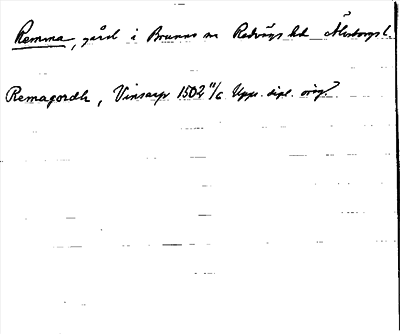 Remma, gård i Brunns sn Redvägs hd Älvsborgs l.
Remagordh, Vinsarp 1502 11/6 Upps. dipl. orig?